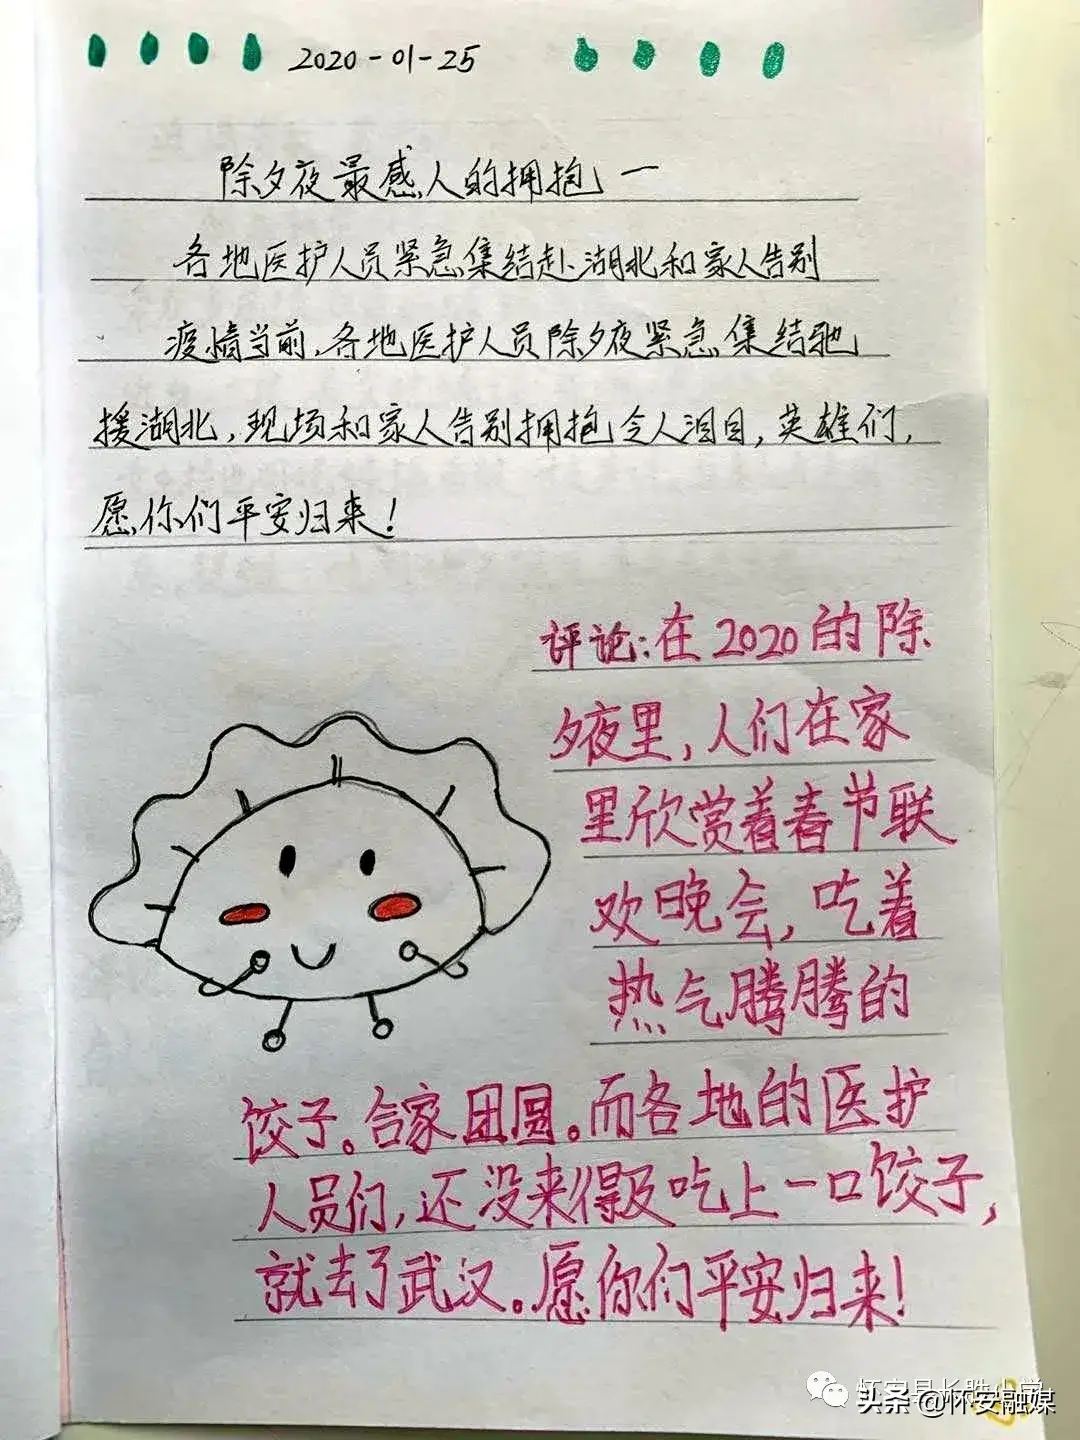 2020-01-25
除夕夜最感人的拥抱一
各地医护人员紧急集结赴湖北和家人告别
疫情当前,各地医护人员除夕夜紧急集结驰
援湖北,现场和家人告别拥抱令人泪目,英雄们,
愿你们平安归来!
评论:在2020的除
夕夜里,人们在家
里欣赏着春节联
欢晚会,吃着
热气腾腾的
饺子。合家团圆。而各地的医护
人员们,还没来得及吃上一口饺子,
就去了武汉。愿你们平安归来!
怀安县长胜小学
头条@怀安融媒